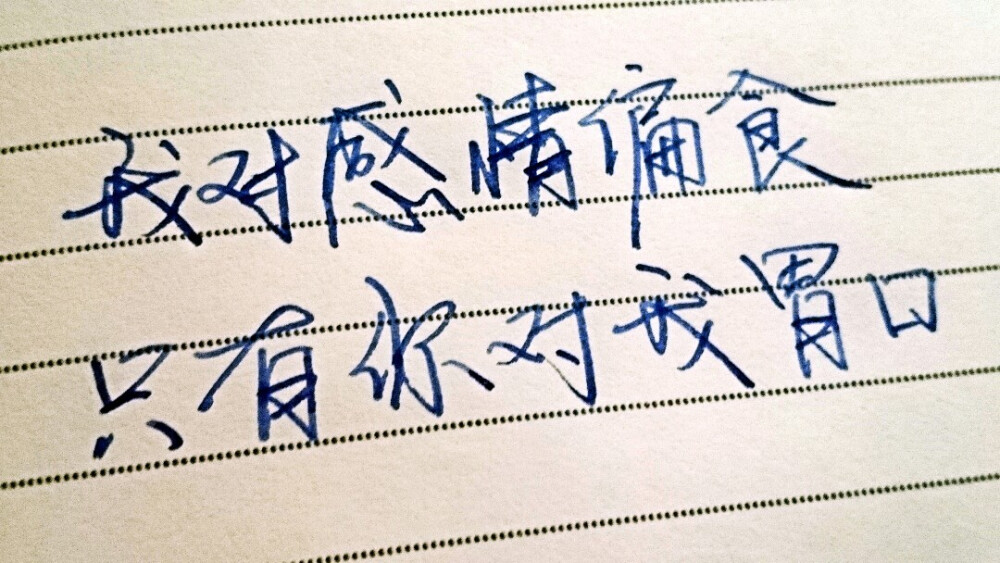 我对感情偏食
只有你对我胃口